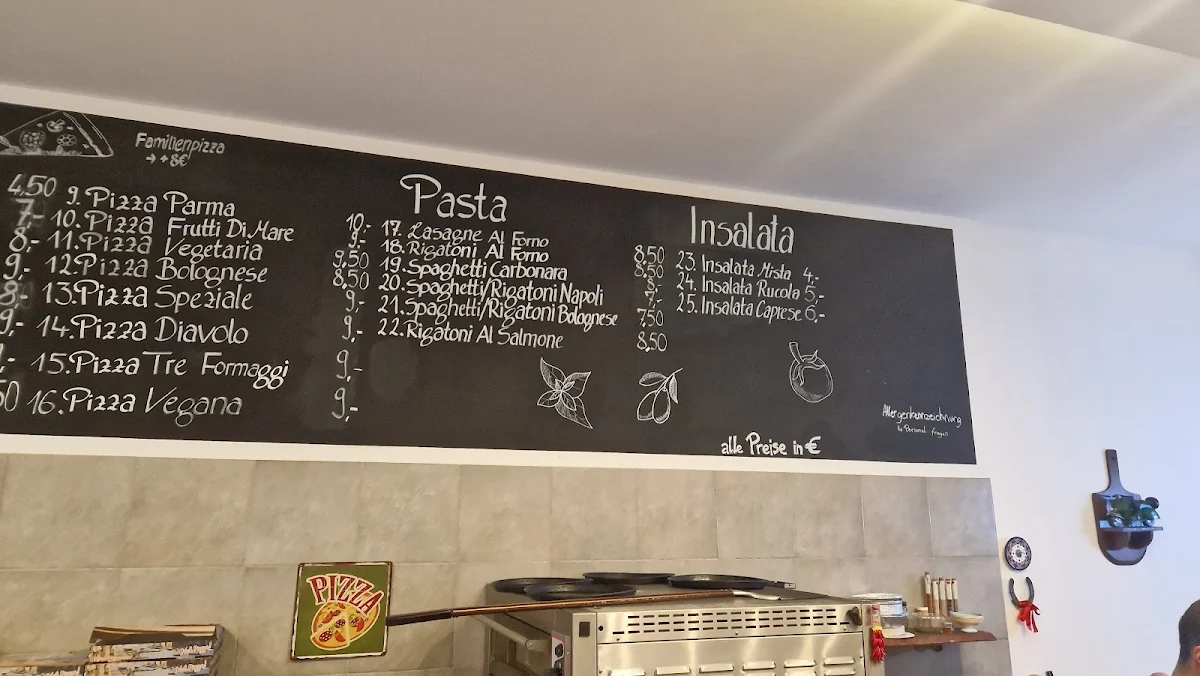 Familienpizza
→ + 8€
4,50
7,-
8,-
9,-
8,-
9,-
9. Pizza Parma 10,-
10. Pizza Frutti Di Mare 9,-
11. Pizza Vegetaria 9,50
12. Pizza Bolognese 8,50
13. Pizza Speziale 9,-
14. Pizza Diavolo 9,-
15. Pizza Tre Formaggi 9,-
16. Pizza Vegana 9,-
Pasta
17. Lasagne Al Forno 8,50
18. Rigatoni Al Forno 8,50
19. Spaghetti Carbonara 8,-
20. Spaghetti/Rigatoni Napoli 7,-
21. Spaghetti/Rigatoni Bolognese 7,50
22. Rigatoni Al Salmone 8,50
Insalata
23. Insalata Mista 4,-
24. Insalata Rucola 5,-
25. Insalata Caprese 6,-
alle Preise in €
Allergenkennzeichnung
Personal fragen
PIZZA